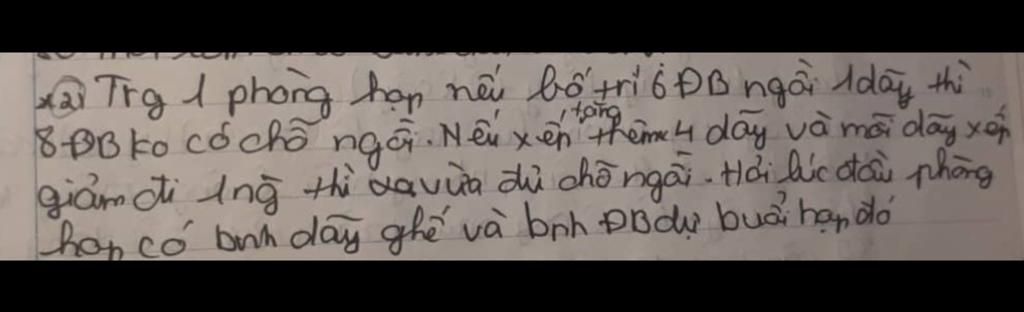 x2) Trg 1 phòng họp nếu bố trí 6 ĐB ngồi 1 dãy thì
8 ĐB ko có chỗ ngồi. Nếu xếp tăng thêm 4 dãy và mỗi dãy xếp
giảm đi 1 ng thì vừa đủ chỗ ngồi. Hỏi lúc đầu phòng
họp có bnh dãy ghế và bnh ĐB dự buổi họp đó